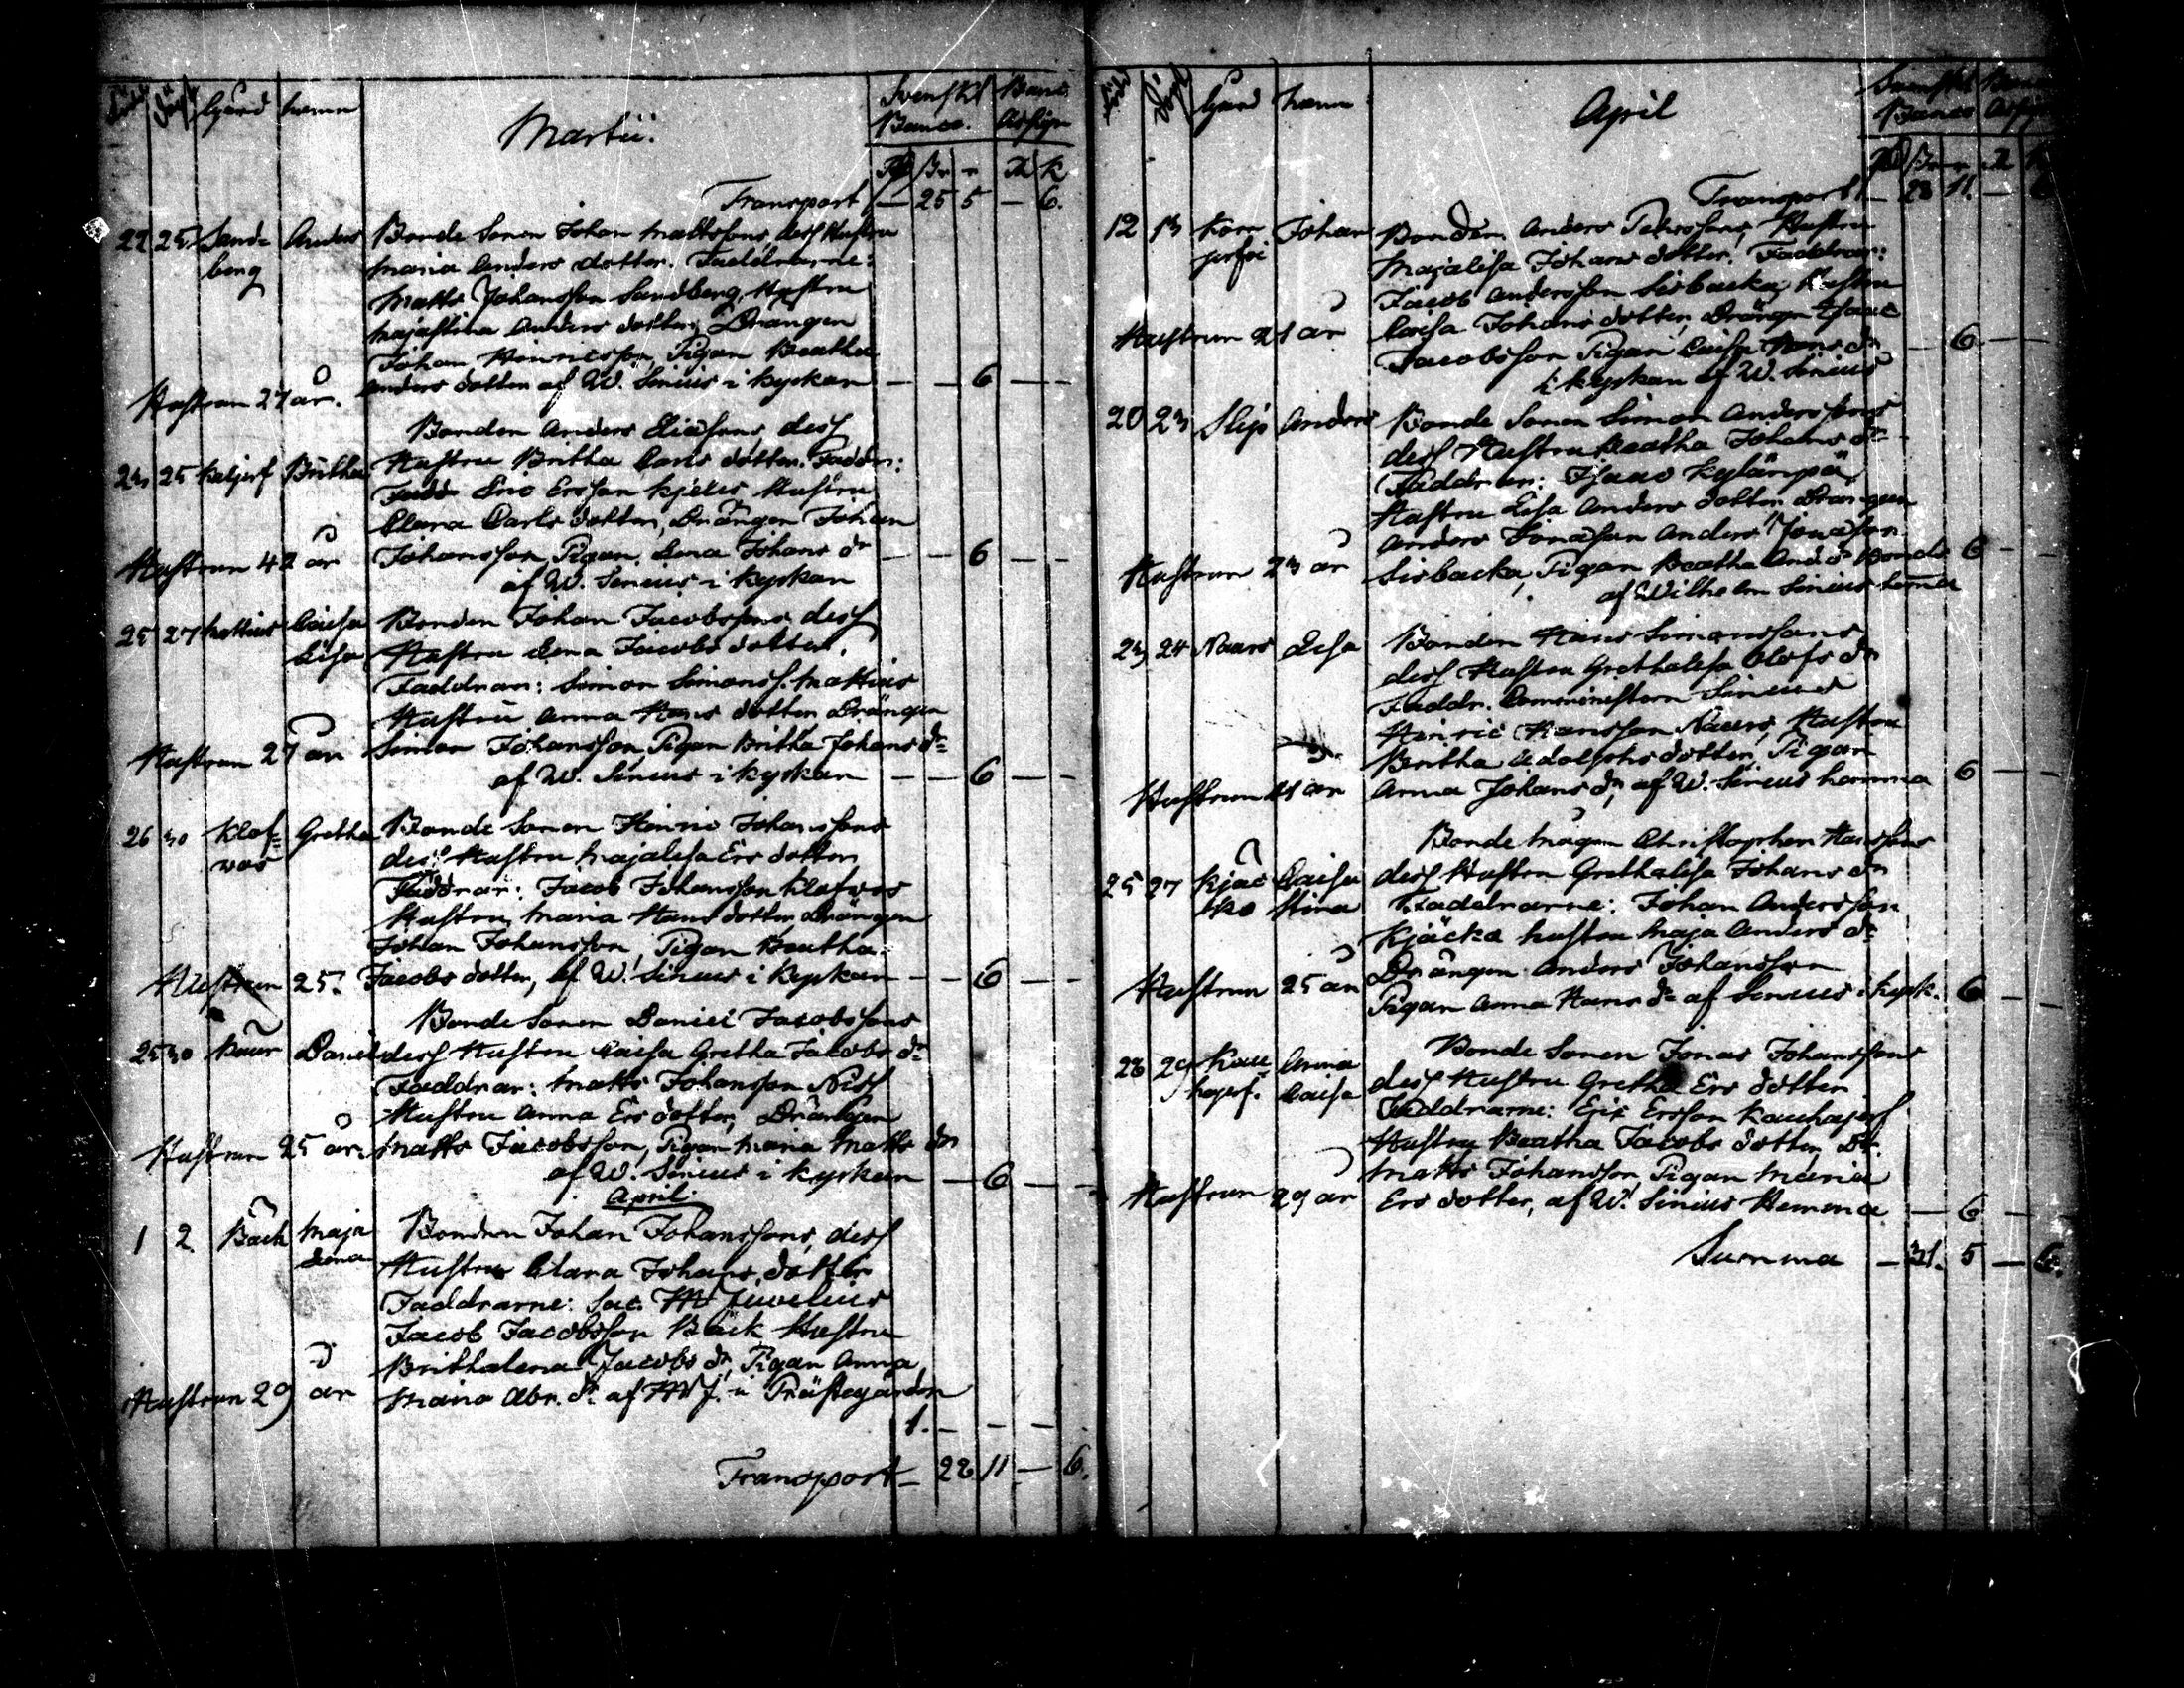 Född Döpt Gård namn Martii. Svenskt Banco. Banc. Assign
Rd Br r R K
Transport — 25 5 — 6.
22 25 Sand= Anders Bonde Sonen Johan Mattssons, dess Hustru
berg Maria Anders dotter. Faddrarne:
Matts Johansson Sandberg, Hustru
Majastina Anders dotter, Drängen
Johan Hinricsson, Pigan Beatha
Hustrun 27 år. Anders dotter af W. Sinius i kyrkan — — 6 — —
Bonden Anders Eliasons dess
23 25 Keljerf Britha Hustru Britha Caris dotter. Faddr:
Eric Ersson Kjeles, Hustru
Clara Carls dotter, Drängen Johan
Hustrun 42 år Johansson, Pigan Lena Johans dr — — 6 — —
af W. Sinius i kyrkan
25 27 Mattius Caisa Bonden Johan Jacobssons, dess
Lisa Hustru Lena Jacobs dotter.
Faddrar: Simon Simonss. Mattius
Hustru Anna Hans dotter Drängen
Hustrun 27 år Simon Johansson, Pigan Britha Johans dr
af W. Sinius i kyrkan — — 6 — —
26 30 Klof= Gretha Bonde Sonen Hinric Johanssons
vas dess Hustru Majalisa Ers dotter
Faddrar: Jacob Johansson Klofvas
Hustru Maria Hans dotter Drängen
Johan Johansson, Pigan Beatha
Hustrun 25. Jacobs dotter, af W. Sinius i kyrkan — — 6 — —
Bonde Sonen Daniel Jacobssons
25 30 Daniel dess Hustru Caisa Gretha Jacobs dr
Faddrar: Matts Johansson Niss
Hustru Anna Ers dotter, Drängen
Hustrun 25 år. Matts Jacobsson, Pigan Maria Matts dr
af W. Sinius i kyrkan — 6 — —
April.
1 2 Bäck Maja Bonden Johan Johanssons, dess
Lena Hustru Clara Johans dotter
Faddrarne: Sac. Juvelius
Jacob Jacobsson Bäck Hustru
Brithalena Jacobs dr, Pigan Anna
Hustrun 29 år Maria Abr. dr. af i Prästegården
1. — — —
Transport — 28 11 — 6.
Född Döpt Gård namn April Svenskt Banco
Transport — 28 11. — 6
12 13 Kor Johan Bonden Anders Pehrssons, Hustru
Majalisa Johans dotter. Faddrar:
Jacob Andersson Sisbacka, Hustru
Hustrun 21 år Caisa Johans dotter, Drängen Isaac
Jacobsson Pigan Caisa Hans dr — 6 — —
i kyrkan af W. Sinius
20 23 Slip Anders Bonde Sonen Simon Anderssons
dess Hustru Beatha Johans dr
Faddrar: Isaac Kylänpä,
Hustru Lisa Anders dotter Drängen
Anders Jonasson
Hustrun 23 år Sisbacka, Pigan Beatha And. dr 6 — —
af Wilhelm Sinius hemma
23 24 Naars Lisa Bonden Hans Simonssons
dess Hustru Grethalisa Olofs dr
Faddr. Comministern Sinius
Hinric Hansson Naars, Hustru
Britha Adolphs dotter, Pigan
Hustrun 41 år Anna Johans dr, af W. Sinius hemma 6 — —
Bonde Mågen Christopher Hanssons
25 27 Kjäc Caisa dess Hustru Grethalisa Johans dr
ko Stina Faddrarne: Johan Andersson
Kjäcko hustru Maja Anders dr
Drängen Anders Johansson
Hustrun 25 år Pigan Anna Hans dr af Sinius i kyrk. 6 — —
Bonde Sonen Jonas Johanssons
28 29 Kau= Anna dess Hustru Gretha Ers dotter
hajerf. Caisa Faddrarne: Eric Ersson Kauhajerf
Hustru Beatha Jacobs dotter Dr.
Matts Johansson, Pigan Maria
Hustrun 29 år Ers dotter, af W. Sinius Hemma — 6 — —
Summa — 31. 5 — 6.